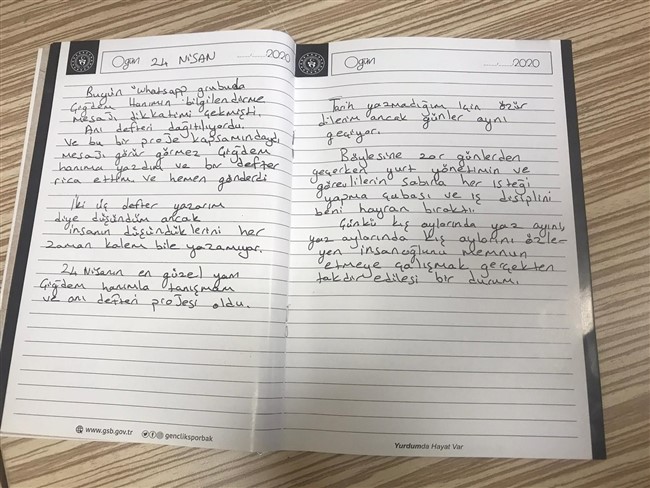 O gün 24 NİSAN 2020
Bugün "whatsapp grubuda
Çiğdem Hanımın bilgilendirme
mesajı dikkatimi çekmişti.
Anı defteri dağıtılıyordu.
Ve bu bir proje kapsamındaydı
mesajı görür görmez Çiğdem
hanıma yazdım ve bir defter
rica ettim. Ve hemen gönderdi
İki üç defter yazarım
diye düşündüm ancak
insanın düşündüklerini her
zaman kalem bile yazamıyor.
24 Nisanın en güzel yanı
Çiğdem hanımla tanışmam
ve anı defteri projesi oldu.
www.gsb.gov.tr gencliksporbak
O gün 2020
Tarih yazmadığım için özür
dilerim ancak günler aynı
geçiyor.
Böylesine zor günlerden
geçerken yurt yönetimin ve
görevlilerin sabırla her isteği
yapma çabası ve iş disiplini
beni hayran bıraktı.
Çünkü kış aylarında yaz ayını,
yaz aylarında kış aylarını özle-
yen insanoğlunu memnun
etmeye çalışmak gerçekten
takdir edilesi bir durum.
Yurdumda Hayat Var